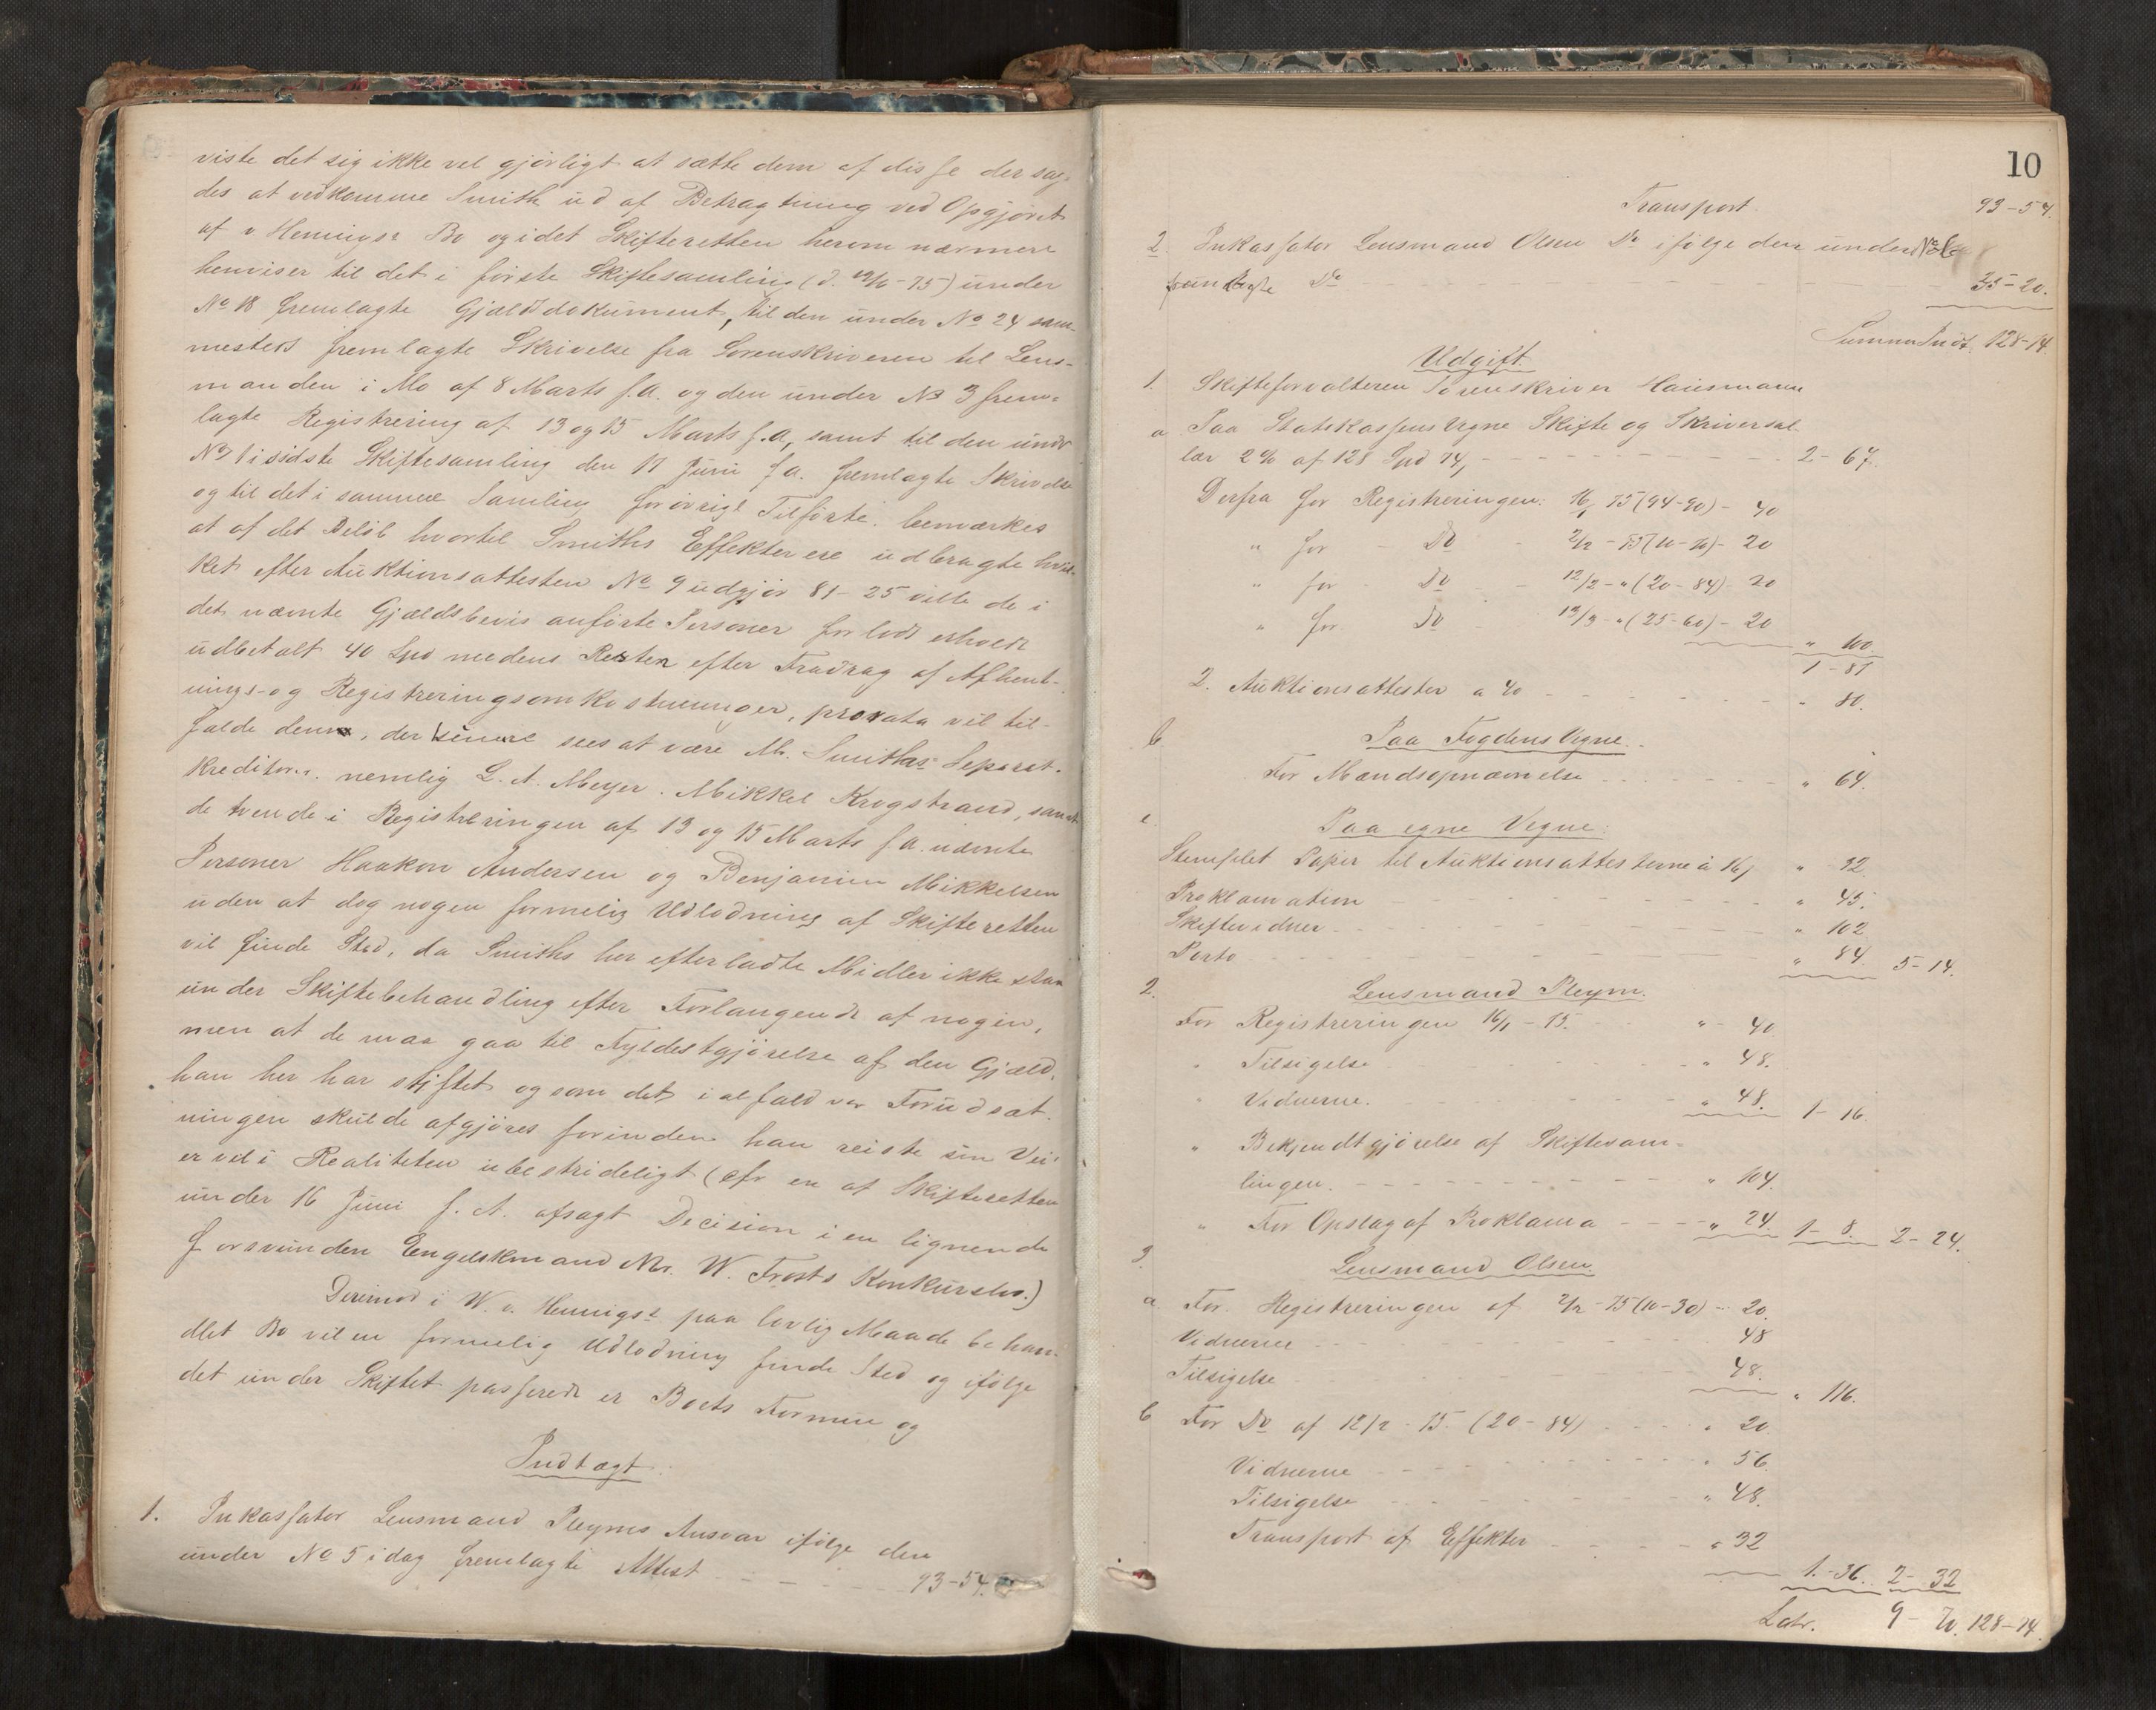 viste det sig ikke vel gjørligt at sætte dem af disse der sag-
des at vedkomme Smith ud af Betragtning ved Opgjøret
af v. Hennigs Bo og idet Skifteretten herom nærmere
henviser til det i første Skiftesamling (d. -75) under
No 18 fremlagte Gjældsdokument, til den under No 24 sam-
mesteds fremlagte Skrivelse fra Sorenskriveren til Lens-
manden i Mo af 8 Marts f.A. og den under No 3 frem-
lagte Registrering af 13 og 15 Marts f.A., samt til den under
No 1 i sidste Skiftesamling den 11 Juni f.A. fremlagte Skrivelse
og til det i samme Samling forøvrigt Tilførte. bemærkes
at af det Beløb hvortil Smiths Effekter ere udbragte hvil-
ket efter Auktionsattesten No 9 udgjør 81-25 ville de i
det nævnte Gjældsbevis anførte Personer forlods erholde
udbetalt 40 Spd medens Resten efter Fradrag af Afhent-
nings- og Registreringsomkostninger, prorata vil til-
falde dem, der senere sees at være Mr. Smiths Separat-
kreditorer. nemlig L. A. Meyer. Mikkel Krogstrand, samt
de tvende i Registreringen af 13 og 15 Marts f.A. nævnte
Personer Haakon Andersen og Benjamin Mikkelsen
uden at dog nogen formelig Udlodning af Skifteretten
vil finde Sted, da Smiths her efterladte Midler ikke staa
under Skiftebehandling efter Forlangende af nogen,
men at de maa gaa til Fyldestgjørelse af den Gjæld,
han her har stiftet og som det i alfald var Forudsæt-
ningen skulde afgjøres forinden han reiste sin Vei
er vel i Realiteten ubestrideligt (cfr en af Skifteretten
under 16 Juni f. A. afsagt Decision i en lignende
forsvunden Engelskmand Mr. W. Frosts Konkursbo.)
Derimod i W. v. Hennigs paa lovlig Maade behan-
dlet Bo vil en formelig Udlodning finde Sted og ifølge
det under Skiftet passerede er Boets Formue og
Indtægt.
1. Inkassator Lensmand Pleyms Ansvar ifølge den
under No 5 idag fremlagte Attest 93-54.
10
Transport. 93-54.
2. Inkassator Lensmand Olsen Do ifølge den under No 6
fremlagte Do 35-20.
Summa Indt. 128-74.
Udgift.
1. Skifteforvalteren Sorenskriver Hausmann
a Paa Statskassens Vegne Skifte og Skriversal-
lær 2% af 128 Spd 74, 2- 67.
Derfra for Registreringen: 16/1 75 (94-90) - 40
" for - Do - 2/2 - 75 (10-30) - 20
" for Do - 12/2 - " (20-84) - 20
" for Do 13/3 - " (25-60) - 20
" 100.
1-87
2. Auktionsattester a 40 " 80.
b. Paa Fogdens Vegne.
For Mandsopnævnelse " 64.
c Paa egne Vegne:
Stemplet Papir til Auktionsattesterne à 16 " 32.
Proklamation " 45.
Skiftevidner " 102
Porto " 84. 5-14.
2. Lensmand Pleym.
For Registreringen 16/1 - 75. " - 40
" Tilsigelse " 48.
" Vidnerne. " 48. 1-16.
" Bekjendtgjørelse af Skiftesam-
lingen. " 104.
" For Opslag af Proklama " 24. 1-8. 2-24.
3. Lensmand Olsen.
a. For Registreringen af 2/2 - 75 (10-30) - 20.
Vidnerne 48
Tilsigelse 48.
" 116.
b For Do af 12/2 - 75. (20-84) " 20
Vidnerne " 56.
Tilsigelse " 48.
Transport af Effekter " 32
1.-36. 2-32
Latr. 9-70. 128-74.